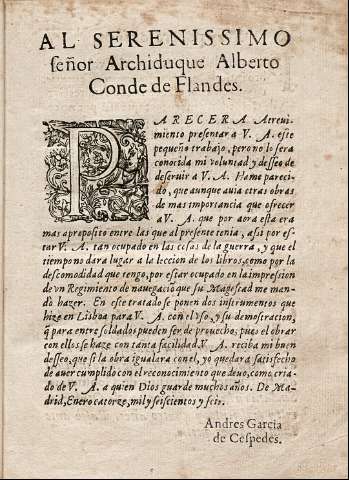 AL SERENISSIMO
señor Archiduque Alberto
Conde de Flandes.
PARECERA Atreui-
miento presentar a V. A. este
pequeño trabajo, pero no lo sera
conocida mi voluntad y desseo de
deseruir a V. A. Hame pareci-
do, que aunque auia otras obras
de mas importancia que ofrecer
a V. A. que por aora esta era
mas aproposito entre las que al presente tenia, assi por es-
tar V. A. tan ocupado en las cosas de la guerra, y que el
tiempo no dara lugar a la leccion de los libros, como por la
descomodidad que tengo, por estar ocupado en la impression
de vn Regimiento de nauegaciõ que su Magestad me man-
dò hazer. En este tratado se ponen dos instrumentos que
hize en Lisboa para V. A. con el vso, y su demostracion,
q̃ para entre soldados pueden ser de prouecho, pues el obrar
con ellos se haze con tanta facilidad, V. A. reciba mi buen
desseo, que si la obra igualara con el, yo quedara satisfecho
de auer cumplido con el reconocimiento que deuo, como cria-
do de V. A. a quien Dios guarde muchos años. De Ma-
drid, Enero catorze, mil y seiscientos y seis.
Andres Garcia
de Cespedes.